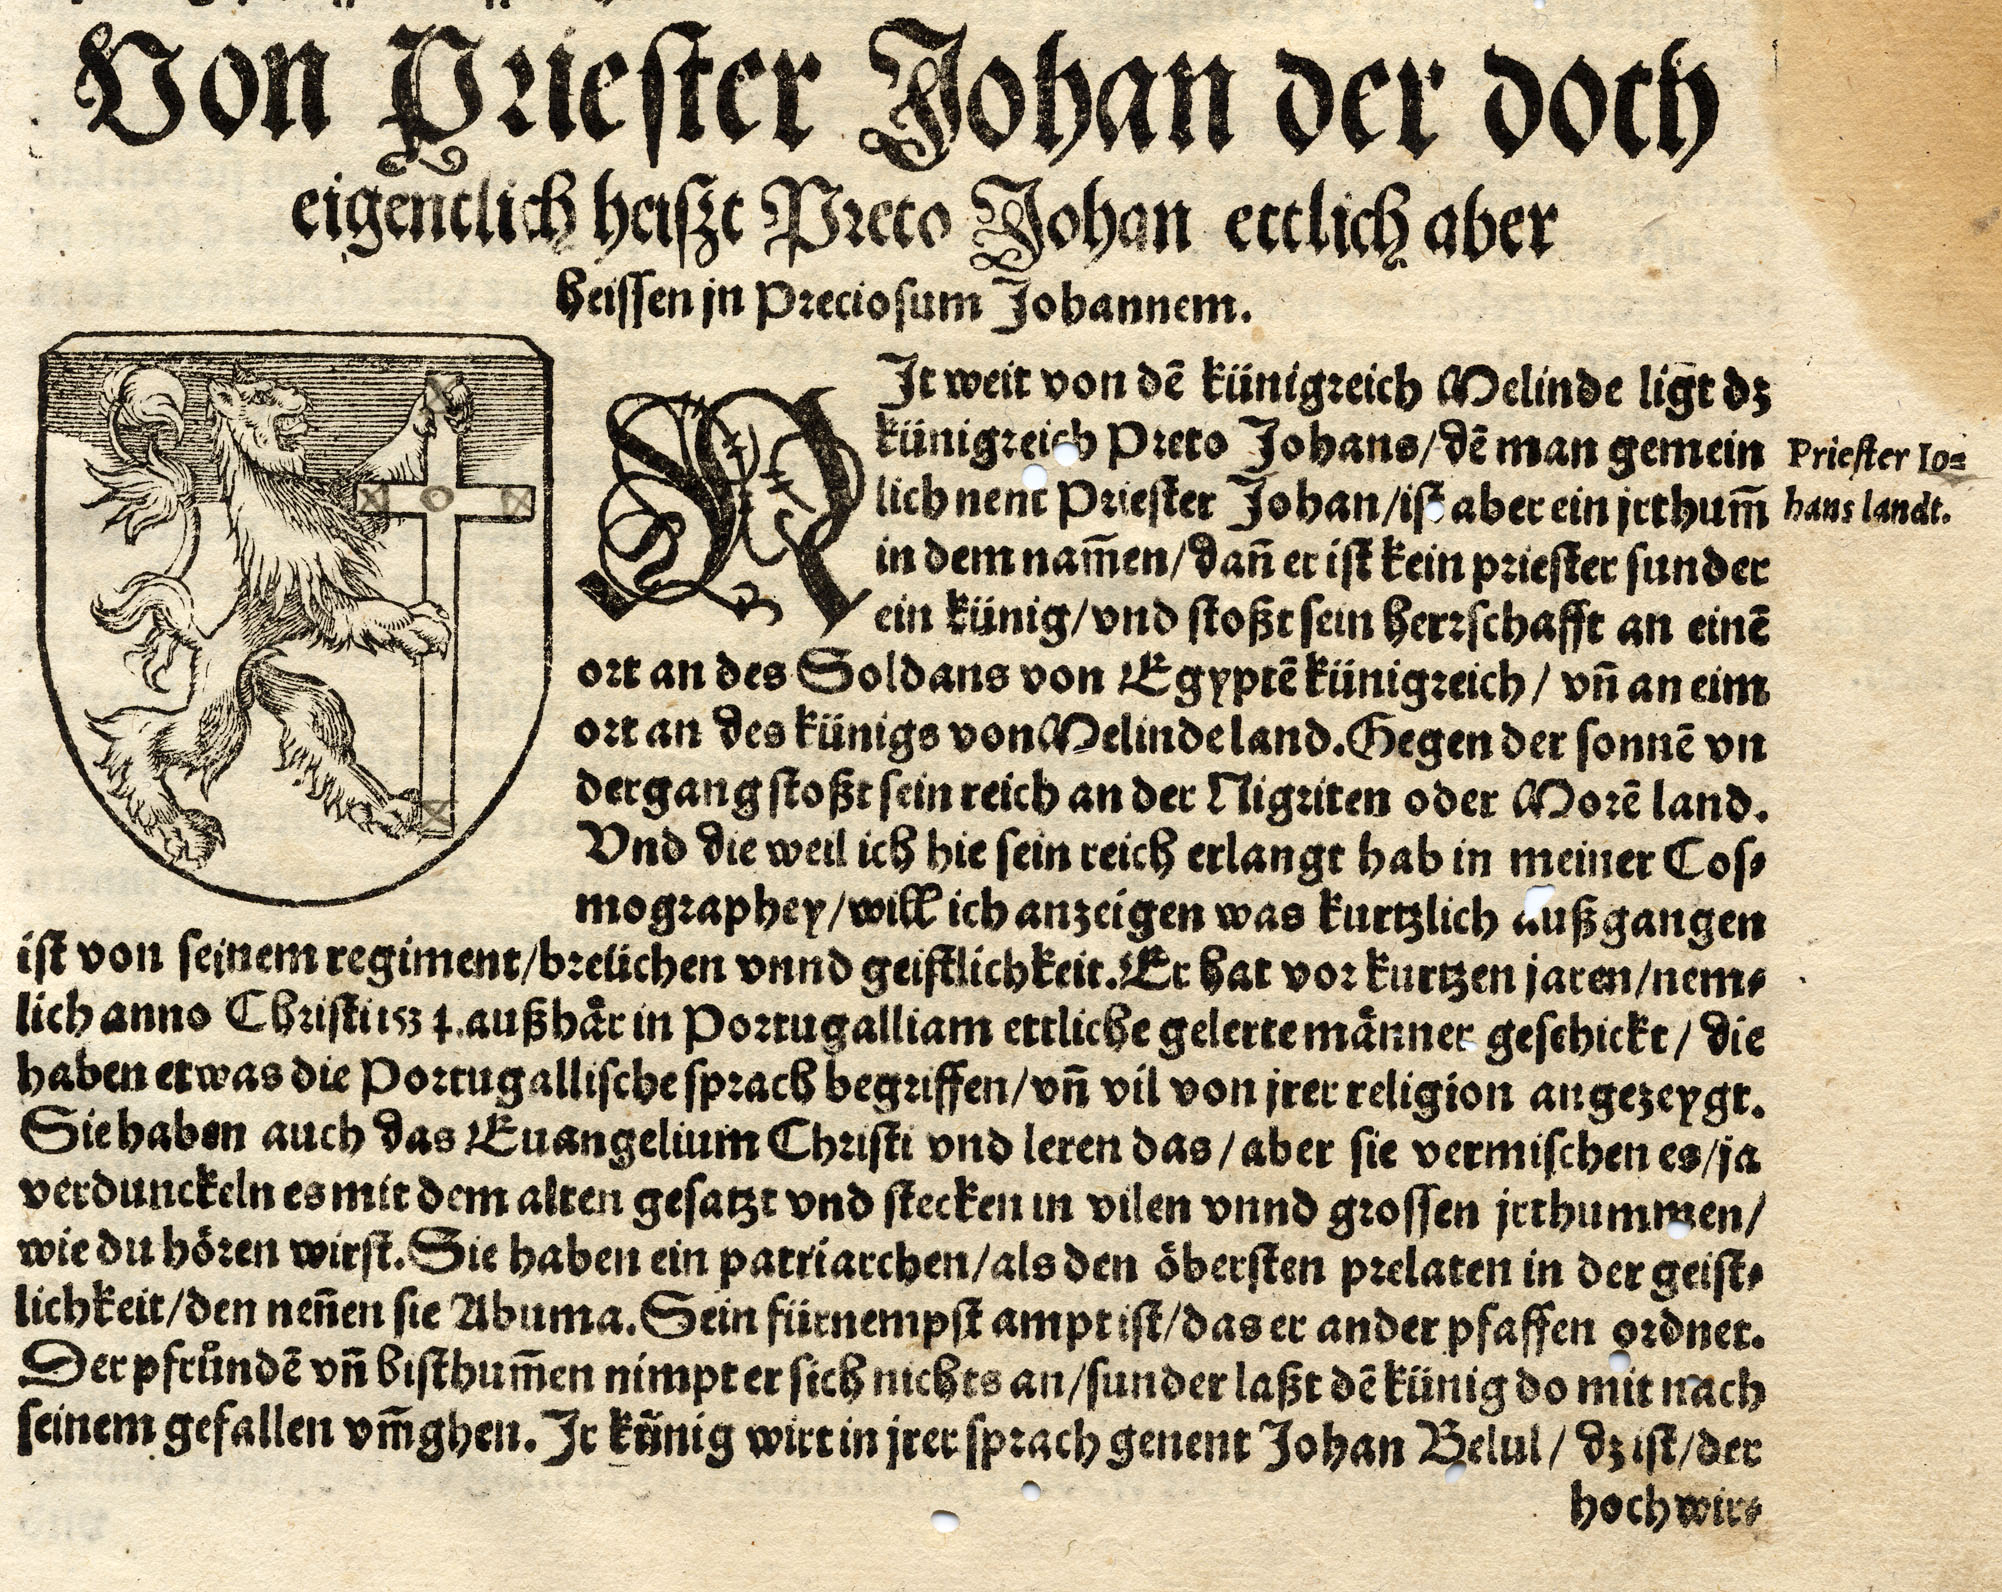 Von Priester Johan der doch
eigentlich heiſzt Preto Johan ettlich aber
heiſſen jn Precioſum Johannem.
NIt weit von dē künigreich Melinde ligt dz
künigreich Preto Johans/dē man gemein
lich nent Prieſter Johan/iſt aber ein jrthum̄
in dem nam̄en/dañ er iſt kein prieſter ſunder
ein künig/vnd ſtoßt ſein herrſchafft an einē
ort an des Soldans von Egyptē künigreich/ vñ an eim
ort an des künigs von Melinde land. Gegen der ſonnē vn
dergang ſtoßt ſein reich an der Nigriten oder Morē land.
Vnd die weil ich hie ſein reich erlangt hab in meiner Coſ⸗
mographey/will ich anzeigen was kurtzlich außgangen
iſt von ſeinem regiment/breüchen vnnd geiſtlichkeit. Er hat vor kurtzen jaren/nem⸗
lich anno Chriſti 1534. außhår in Portugalliam ettliche gelerte månner geſchickt/ die
haben etwas die Portugalliſche ſprach begriffen/vñ vil von jrer religion angezeygt.
Sie haben auch das Euangelium Chriſti vnd leren das/aber ſie vermiſchen es/ja
verdunckeln es mit dem alten geſatzt vnd ſtecken in vilen vnnd groſſen jrthummen/
wie du hören wirſt. Sie haben ein patriarchen/als den öberſten prelaten in der geiſt⸗
lichkeit/den neñen ſie Abuma. Sein fürnempſt ampt iſt/das er ander pfaffen ordnet.
Der pfründē vñ biſthum̄en nimpt er ſich nichts an/ſunder laßt dē künig do mit nach
ſeinem gefallen vm̄ghen. Ir künig wirt in jrer ſprach genent Johan Belul/ dz iſt/der
hochwir⸗
Prieſter Io⸗
hans landt.